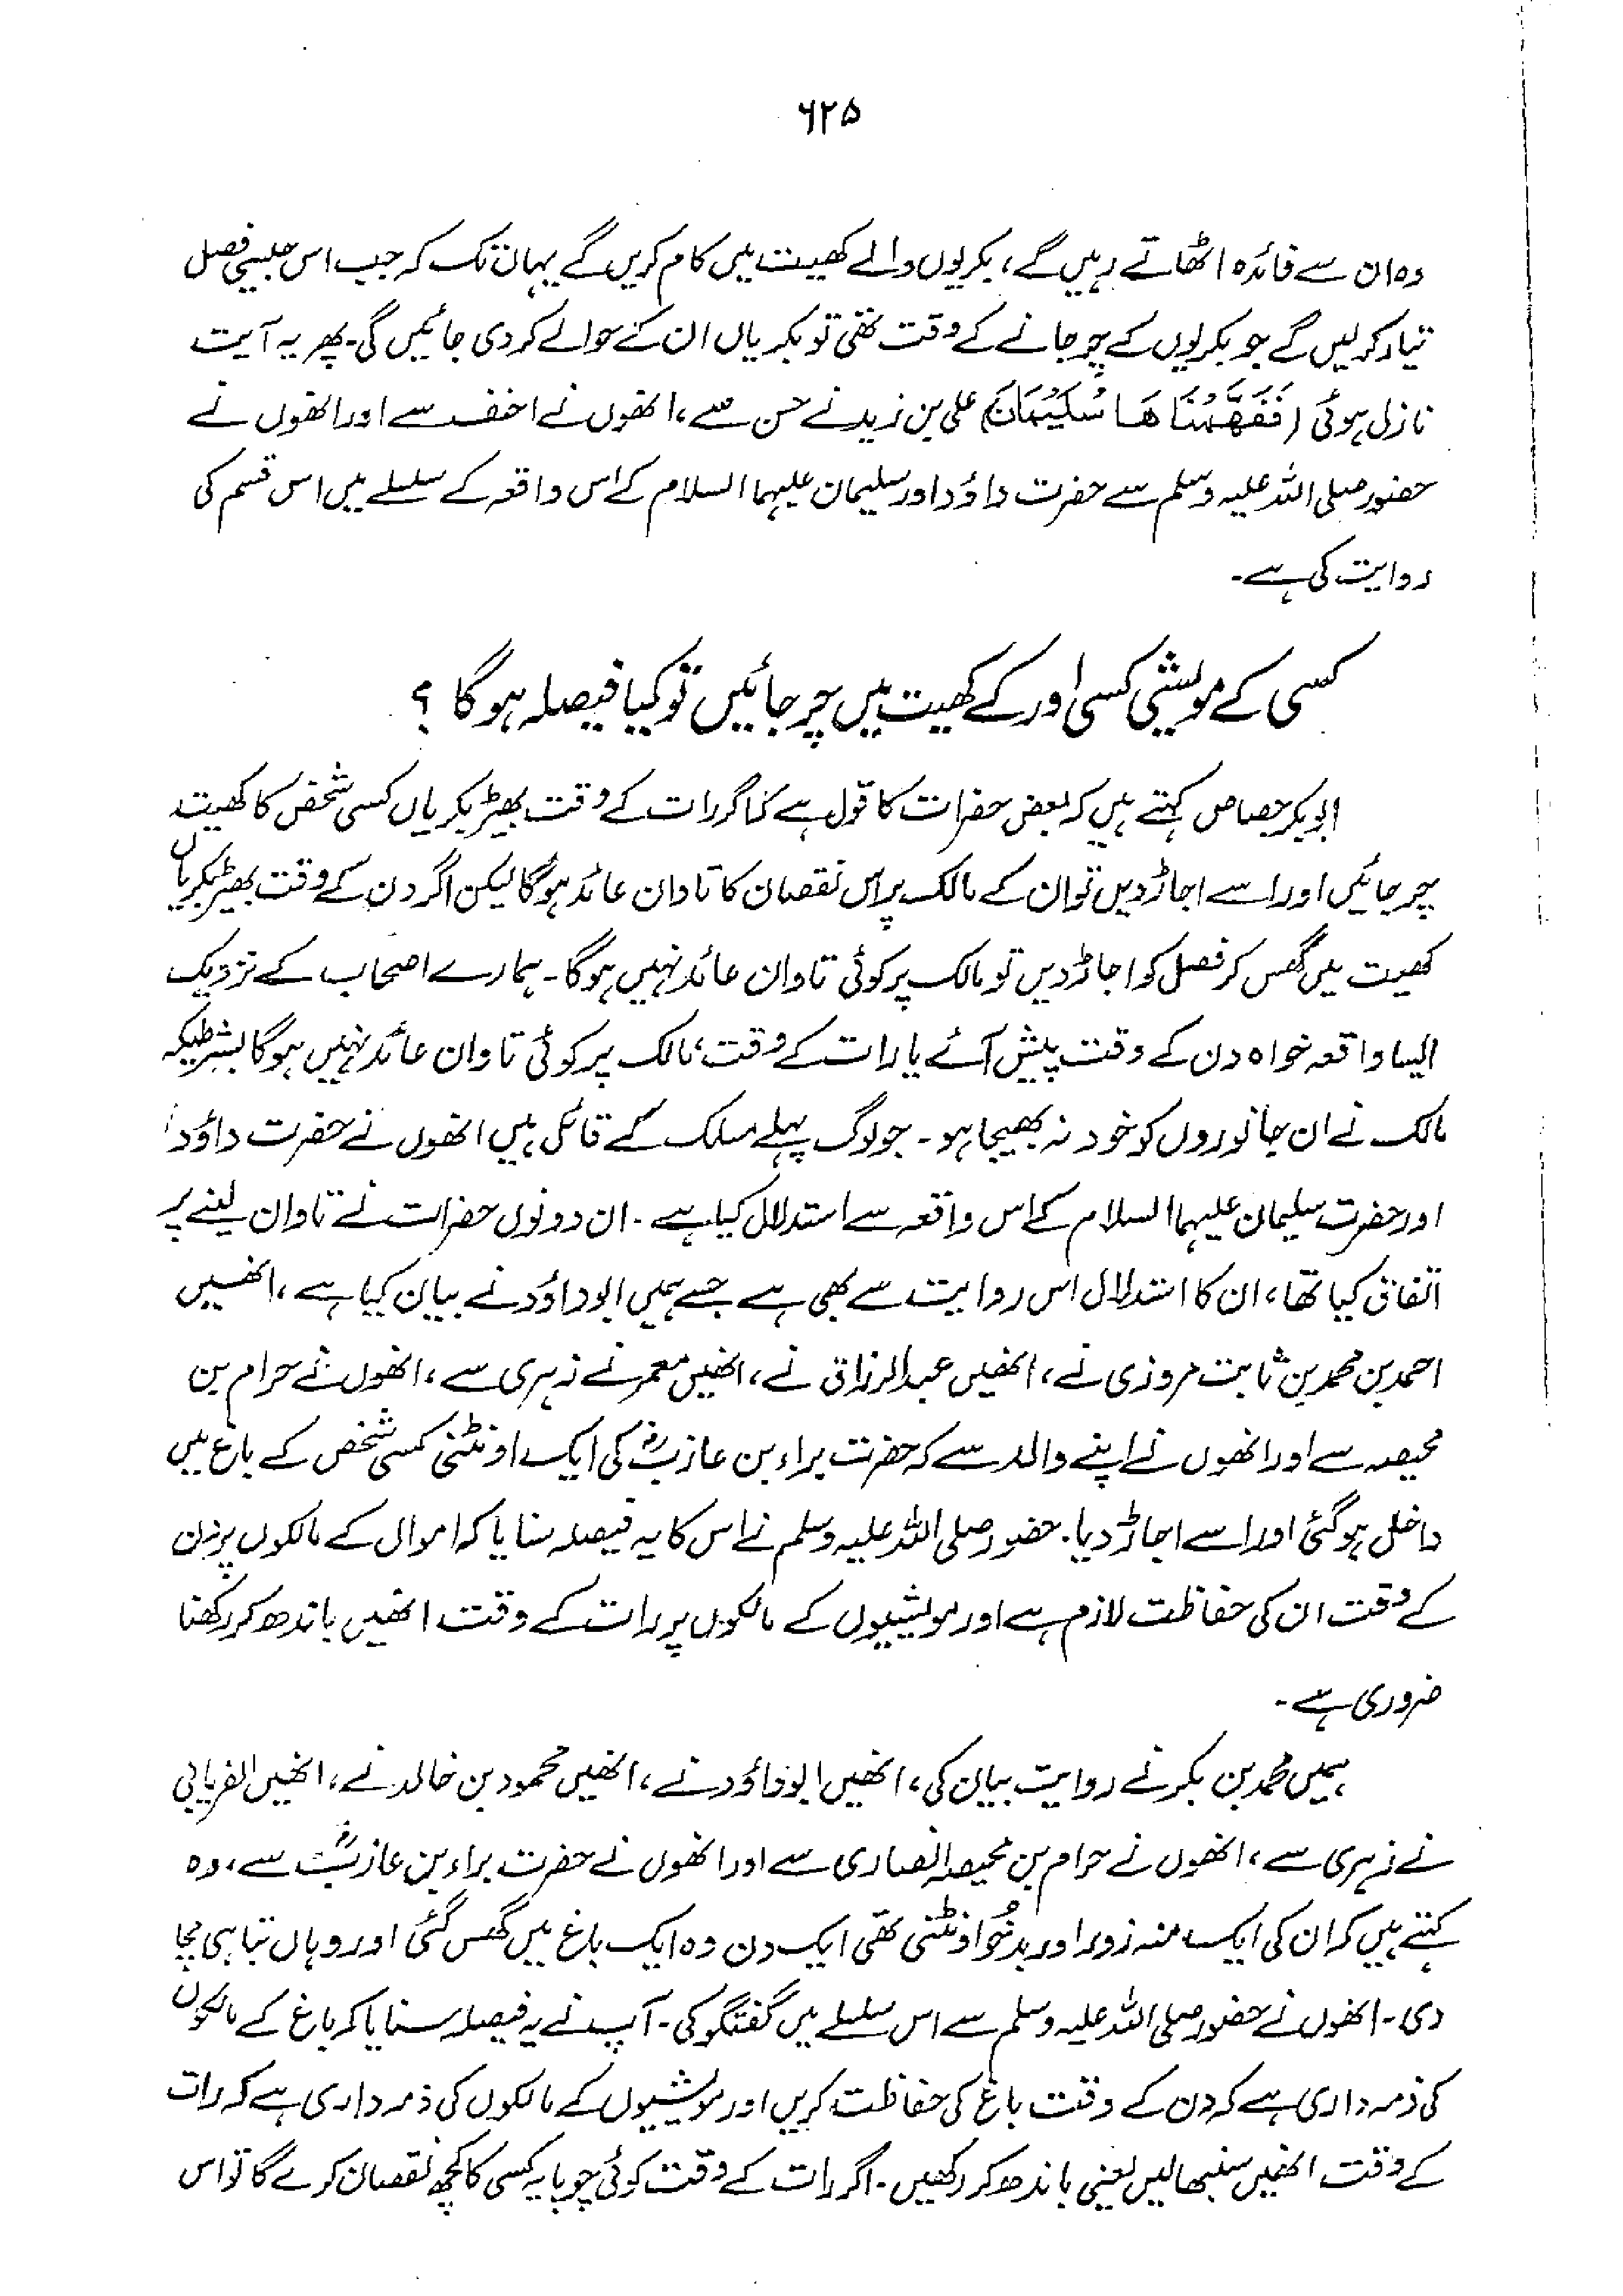 ۶۲۵
وہ ان سے فائدہ اٹھاتے رہیں گے، بکریوں والے کھیت میں کام کریں گے یہاں تک کہ جب اس جیسی فصل
تیار کر لیں گے جو بکریوں کے چر جانے کے وقت تھی تو بکریاں ان کے حوالے کر دی جائیں گی۔ پھر یہ آیت
نازل ہوئی (فَفَهَّمْنَاهَا سُلَيْمَانَ) علی بن زید نے حسن سے، انھوں نے احنف سے اور انھوں نے
حضور صلی اللہ علیہ وسلم سے حضرت داؤد اور سلیمان علیہما السلام کے اس واقعہ کے سلسلے میں اس قسم کی
روایت کی ہے۔
کسی کے مویشی کسی اور کے کھیت میں چر جائیں تو کیا فیصلہ ہوگا ؟
ابوبکر جصاص کہتے ہیں کہ بعض حضرات کا قول ہے کہ اگر رات کے وقت بھیڑ بکریاں کسی شخص کا کھیت
چر جائیں اور اسے اجاڑ دیں تو ان کے مالک پر اس نقصان کا تاوان عائد ہوگا لیکن اگر دن کے وقت بھیڑ بکریاں
کھیت میں گھس کر فصل کو اجاڑ دیں تو مالک پر کوئی تاوان عائد نہیں ہوگا۔ ہمارے اصحاب کے نزدیک
ایسا واقعہ خواہ دن کے وقت پیش آئے یا رات کے وقت، مالک پر کوئی تاوان عائد نہیں ہوگا بشرطیکہ
مالک نے ان جانوروں کو خود نہ بھیجا ہو۔ جو لوگ پہلے مسلک کے قائل ہیں انھوں نے حضرت داؤد
اور حضرت سلیمان علیہما السلام کے اس واقعہ سے استدلال کیا ہے۔ ان دونوں حضرات نے تاوان لینے پر
اتفاق کیا تھا، ان کا استدلال اس روایت سے بھی ہے جسے ہمیں ابوداؤد نے بیان کیا ہے، انھیں
احمد بن محمد بن ثابت مروزی نے، انھیں عبدالرزاق نے، انھیں معمر نے زہری سے، انھوں نے حرام بن
محیصہ سے اور انھوں نے اپنے والد سے کہ حضرت براء بن عازبؓ کی ایک اونٹنی کسی شخص کے باغ میں
داخل ہو گئی اور اسے اجاڑ دیا۔ حضور صلی اللہ علیہ وسلم نے اس کا یہ فیصلہ سنایا کہ اموال کے مالکوں پر دن
کے وقت ان کی حفاظت لازم ہے اور مویشیوں کے مالکوں پر رات کے وقت انھیں باندھ کر رکھنا
ضروری ہے۔
ہمیں محمد بن بکر نے روایت بیان کی، انھیں ابوداؤد نے، انھیں محمود بن خالد نے، انھیں الفریابی
نے زہری سے، انھوں نے حرام بن محیصہ انصاری سے اور انھوں نے حضرت براء بن عازبؓ سے، وہ
کہتے ہیں کہ ان کی ایک منہ زور اور بدخُو اونٹنی تھی ایک دن وہ ایک باغ میں گھس گئی اور وہاں تباہی مچا
دی۔ انھوں نے حضور صلی اللہ علیہ وسلم سے اس سلسلے میں گفتگو کی۔ آپ نے یہ فیصلہ سنایا کہ باغ کے مالکوں
کی ذمہ داری ہے کہ دن کے وقت باغ کی حفاظت کریں اور مویشیوں کے مالکوں کی ذمہ داری ہے کہ رات
کے وقت انھیں سنبھالیں یعنی باندھ کر رکھیں۔ اگر رات کے وقت کوئی چوپایہ کسی کا کچھ نقصان کرے گا تو اس